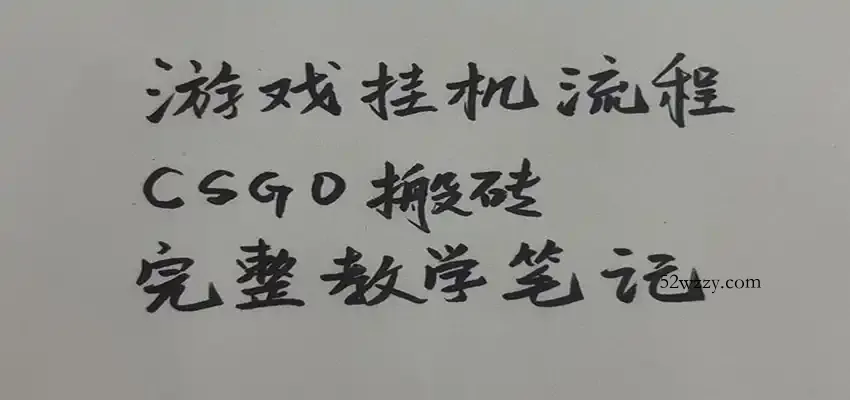 游戏挂机流程
CSGO搬砖
完整教学笔记
52wzzy.com